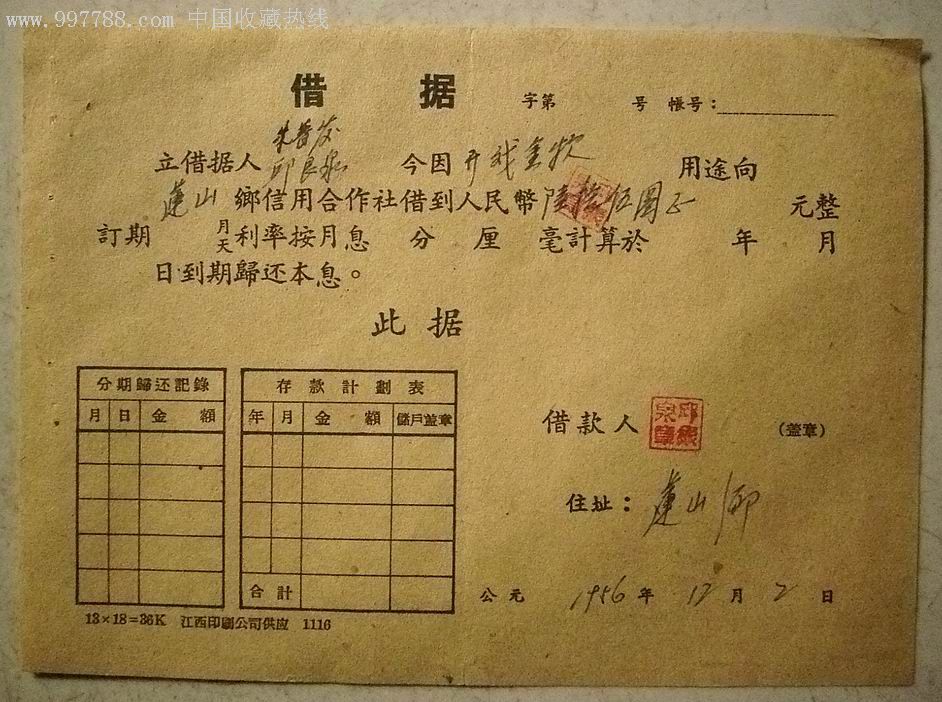 www.997788.com 中国收藏热线
借 据
字第 号 帳号：
立借据人 邱良泉 今因 用途向
莲山 鄉信用合作社借到人民幣 陸拾伍圆正 元整
訂期 月天 利率按月息 分 厘 毫計算於 年 月
日到期歸还本息。
此 据
分期歸还記錄
月 日 金 額
存款計劃表
年 月 金 額 儲戶盖章
合計
借款人 (盖章)
住址： 莲山鄉
公元 1956 年 12 月 2 日
13×18=36K 江西印刷公司供应 1116